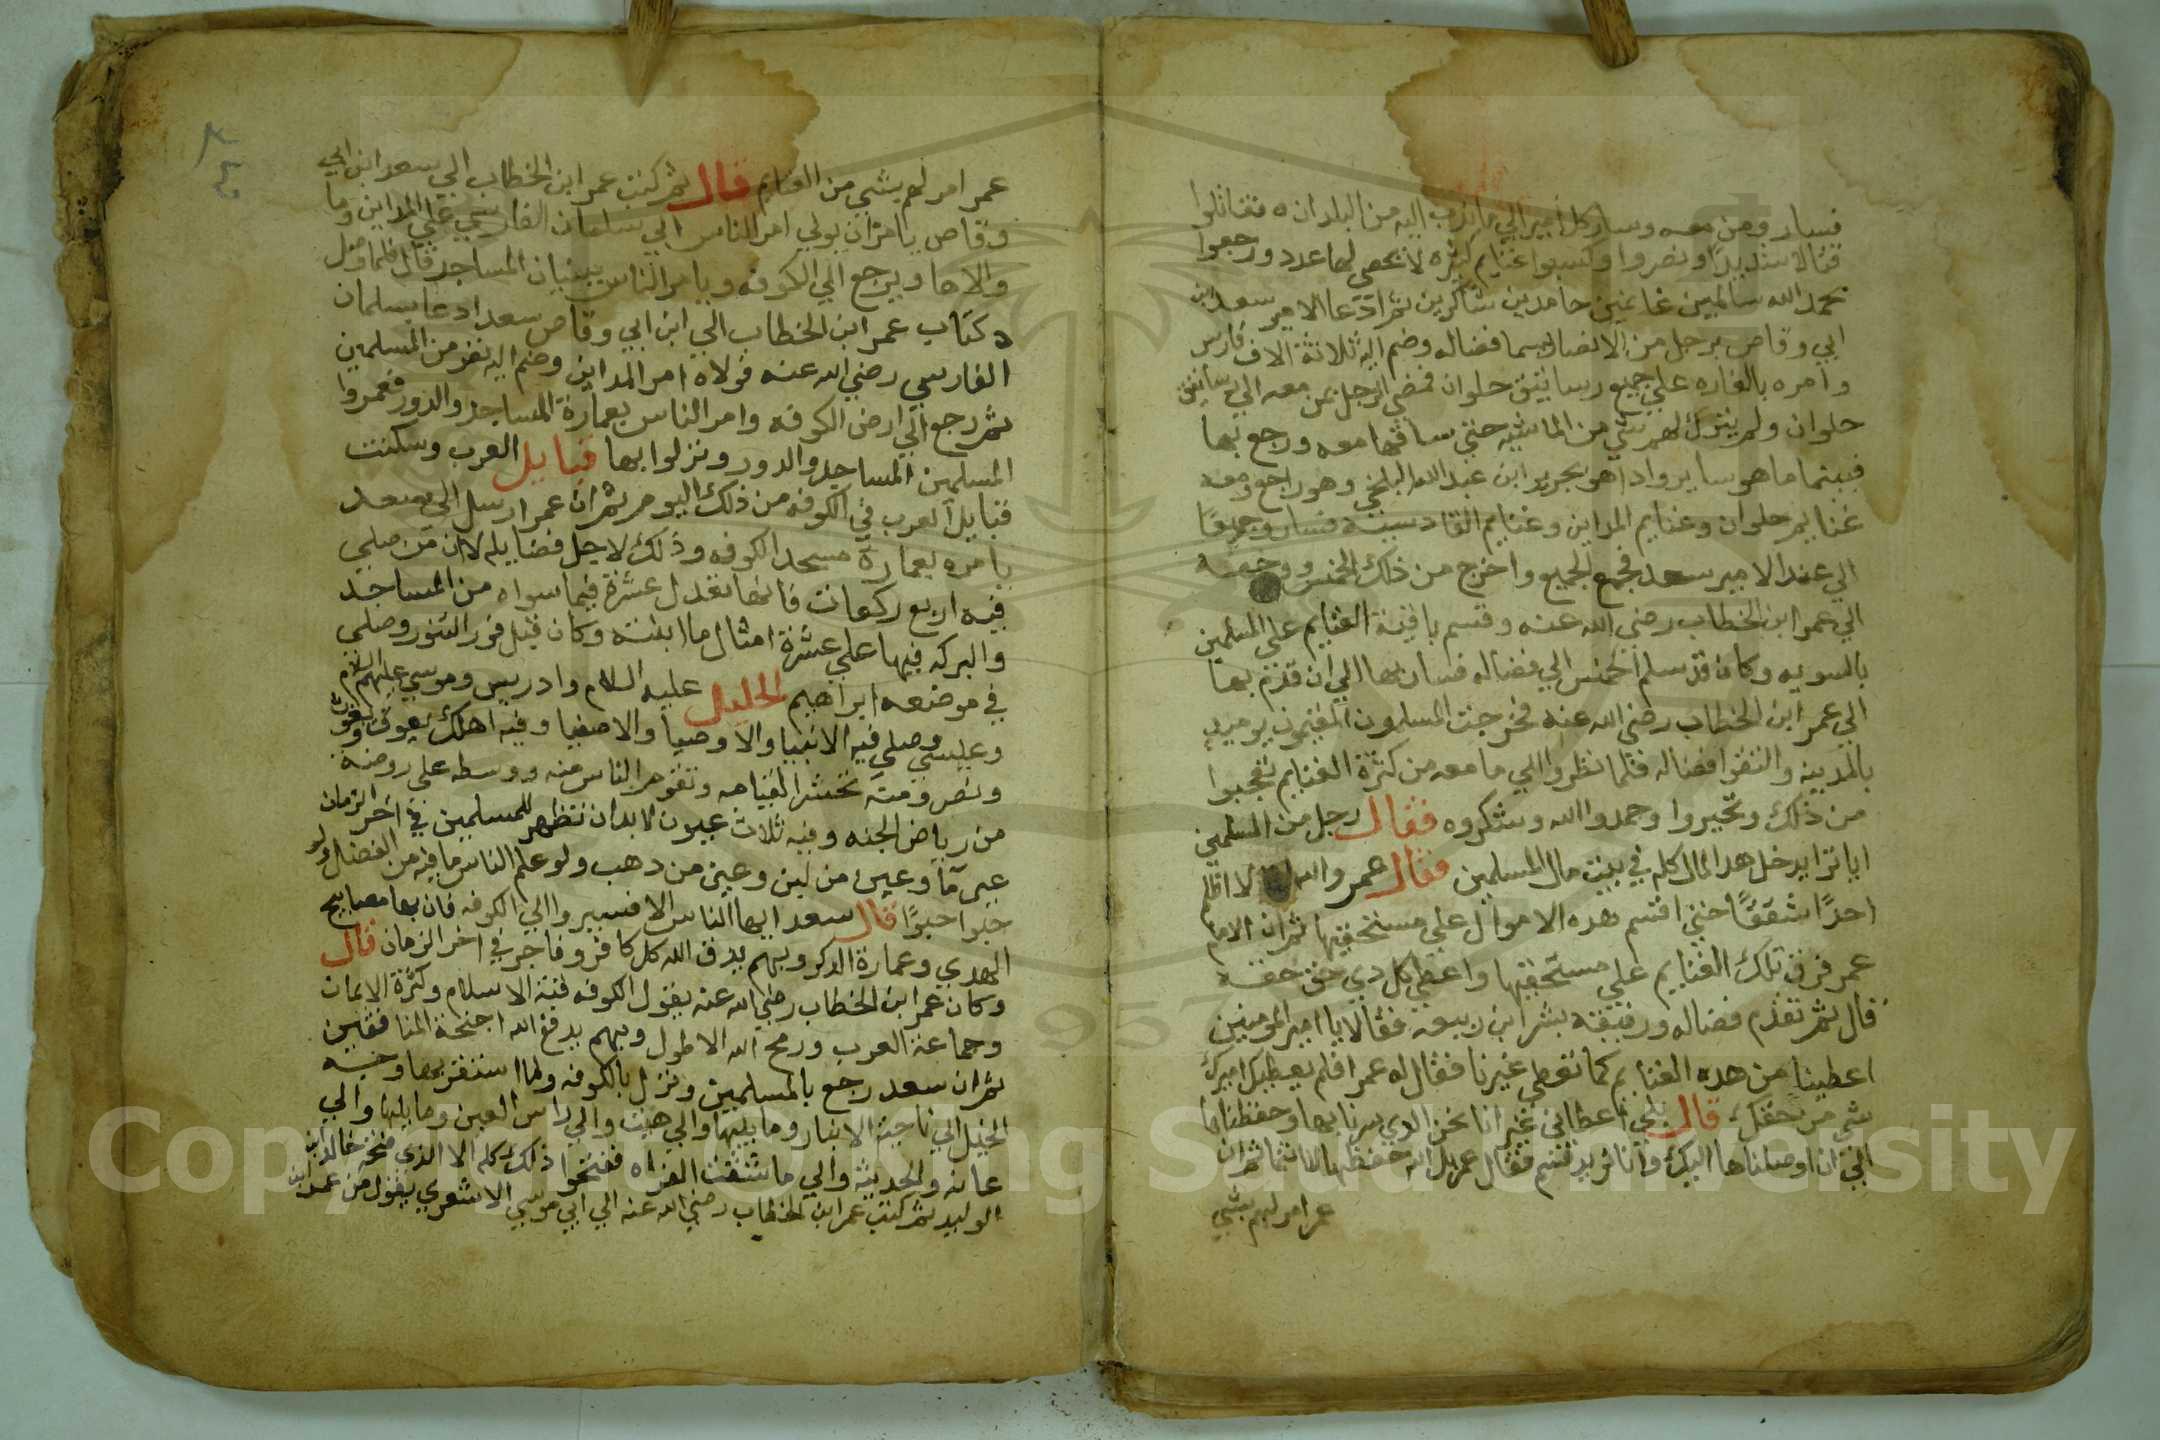 فسار ومن معه وسار كل أمير الي ما ندب اليه من البلدان ه فقاتلوا
قتالا شديدًا ونصروا وكسبوا غنايم كثيره لا يحصي لها عدد ورجعوا
بحمد الله سالمين غانمين حامدين شاكرين ثم ادعا الامير سعد ابن
ابي وقاص برجل من الانصار يسما فضاله وضم اليه ثلاثة الاف فارس
وامره بالغاره علي جميع رساتيق حلوان فمضي الرجل بمن معه الي رساتيق
حلوان ولم يترك لهم شي من الماشيه حتي ساقها معه ورجع بها
فبينما ماهو ساير واد اهو بجرير ابن عبد الله البلخي وهو راجع ومعه
غنايم حلوان وغنايم المداين وغنايم القادسيه فسارو جميعًا
الي عند الامير سعد فجمع الجميع واخرج من ذلك الخمس ووجهه
الي عمر ابن الخطاب رضي الله عنه وقسم باقية الغنايم علي المسلمين
بالسويه وكان قد سلم الخمس الي فضاله فسار بها الي ان قدم بها
الي عمر ابن الخطاب رضي الله عنه فخرجت المسلمون المقيمون يوميد
بالمدينه والتقوا فضاله فلما نظروا الي ما معه من كثرة الغنايم تعجبوا
من ذلك وتحيروا وحمدوا الله وشكروه فقال رجل من المسلمين
ايا ترا يدخل هدا المال كله في بيت مال المسلمين فقال عمر والله لا اظلم
احدًا شققًا حتي اقسم هده الاموال علي مستحقيها ثم ان الامام
عمر فرق تلك الغنايم علي مستحقيها واعطي كل دي حق حقه
قال ثم تقدم فضاله ورفيقه بشر ابن ربيعة فقالا يا امير المومنين
اعطينا من هده الغنايم كما تعطي غيرنا فقال له عمر افلم يعطيك اميرك
شي من حقك قال بلي اعطاني غير انا نحن الدي سرنا بها وحفظناها
الي ان اوصلناها اليك وانا نريد قسم فقال عمر بل الله حفظها لا انتما ثم ان
عمر امر لهم بشي
عمر امر لهم بشي من الغنايم قال ثم كتب عمر ابن الخطاب الي سعد ابن ابي
وقاص يا مر ان يولي امر الناس الي سلمان الفارسي علي المداين وما
والاها ويرجع الي الكوفه ويامر الناس ببنيان المساجد قال فلما وصل
ه كتاب عمر ابن الخطاب الي ابن ابي وقاص سعد ادعا بسلمان
الفارسي رضي الله عنه فولاه امر المداين وضم اليه نفر من المسلمين
ثم رجع الي ارض الكوفه وامر الناس بعمارة المساجد والدور فعمروا
المسلمين المساجد والدور ونزلوا بها قبايل العرب وسكنت
قبايل العرب في الكوفه من ذلك اليوم ثم ان عمر ارسل الي سعد
يامره بعمارة مسجد الكوفه وذلك لاجل فضايله لان من صلي
فيه اربع ركعات فانها تعدل عشرة فيما سواه من المساجد
والبركه فيها علي عشرة امثال ما وكان قيل فور التنور وصلي
في موضعه ابراهيم الخليل عليه السلام وادريس وموسي عليهم السلام
وعيسي وصلي فيه الانبيا والاوصيا والاصفيا وفيه اهلك يعوق ويغوث
ونصر ومنه تحشر القيامه وتقوم الناس منه ووسطه علي روضة
من رياض الجنه وفيه ثلاث عيون لابد ان تظهر للمسلمين في اخر الزمان
عين ما وعين من لبن وعين من دهب ولو علم الناس ما فيه من الفضل ولو
حبوا حبوًا قال سعد ايها الناس الا فسيروا الي الكوفه فان بها مصابيح
الهدي وعمارة الدكر وبهم يدق الله كل كافر وفاجر في اخر الزمان قال
وكان عمر ابن الخطاب رضي الله عنه يقول الكوفه قبة الاسلام وكثرة الايمان
وجماعة العرب ورمح الله الاطول وبهم يدفع الله اجنحة المنافقين
ثم ان سعد رجع بالمسلمين ونزل بالكوفه ولما استقر بها وجه
الخيل الي ناحية الانبار وما يليها والي هيت والي راس العين وما يليها والي
عانه والحديثه والي ما شقت الفراه ففتحوا ذلك كله الا الدي فتحه خالد ابن
الوليد ثم كتب عمر ابن الخطاب رضي الله عنه الي ابي موسي الاشعري يقول من عبد الله